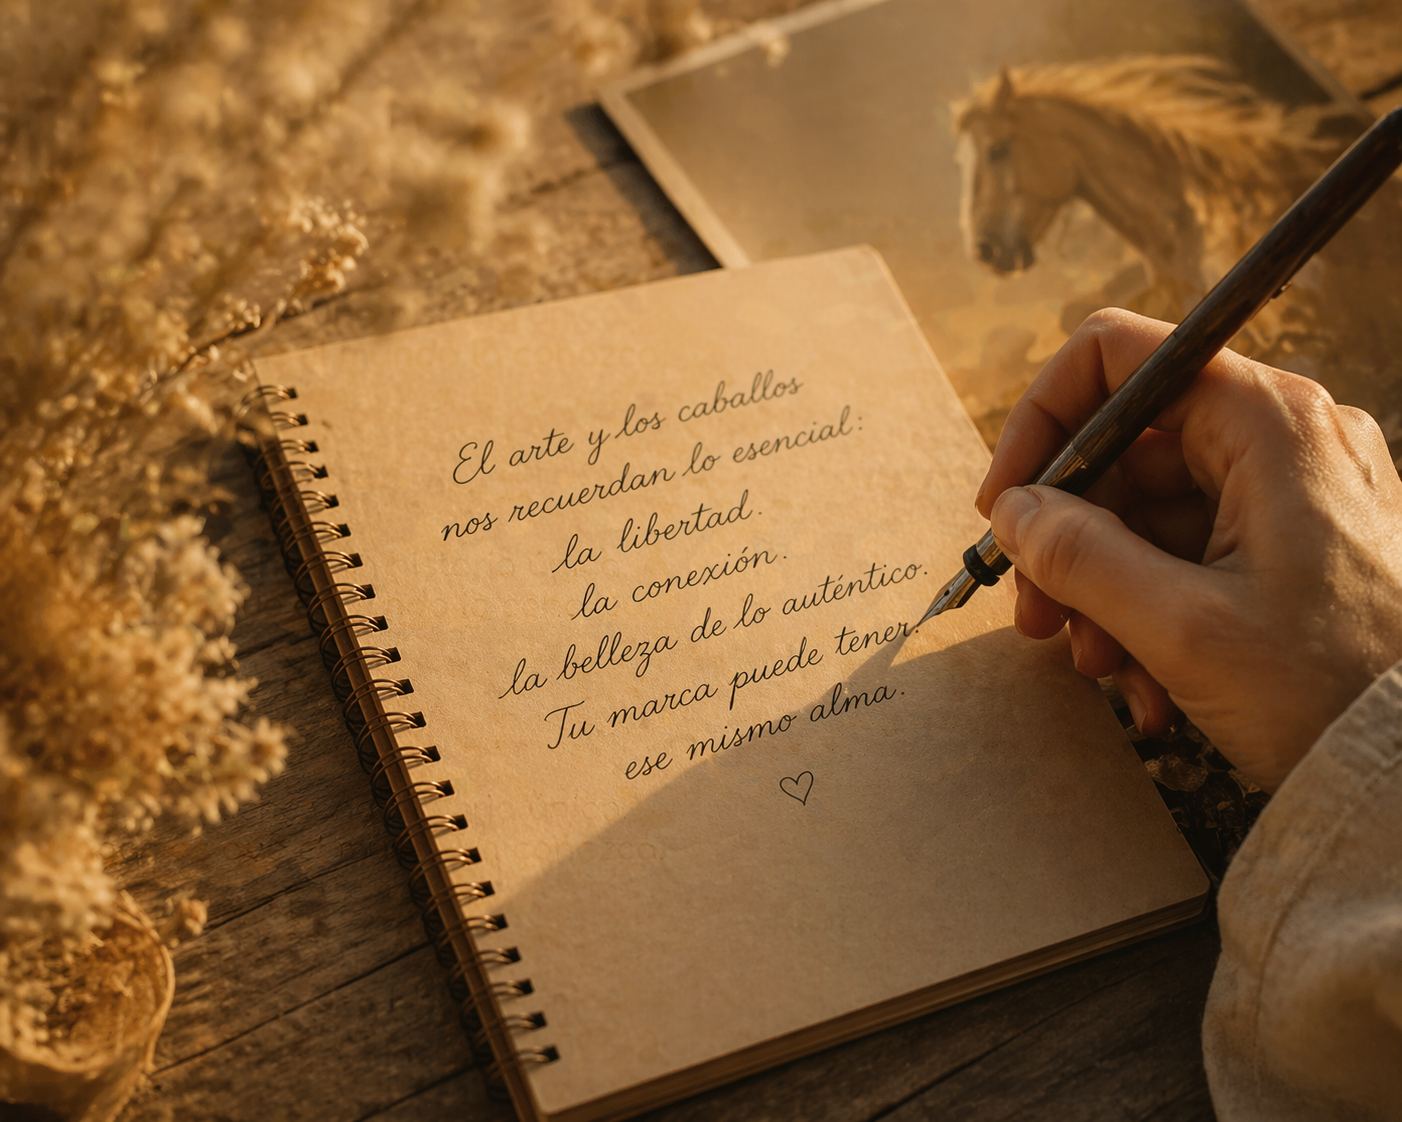 El arte y los caballos
nos recuerdan lo esencial:
la libertad.
la conexión.
la belleza de lo auténtico.
Tu marca puede tener.
ese mismo alma.